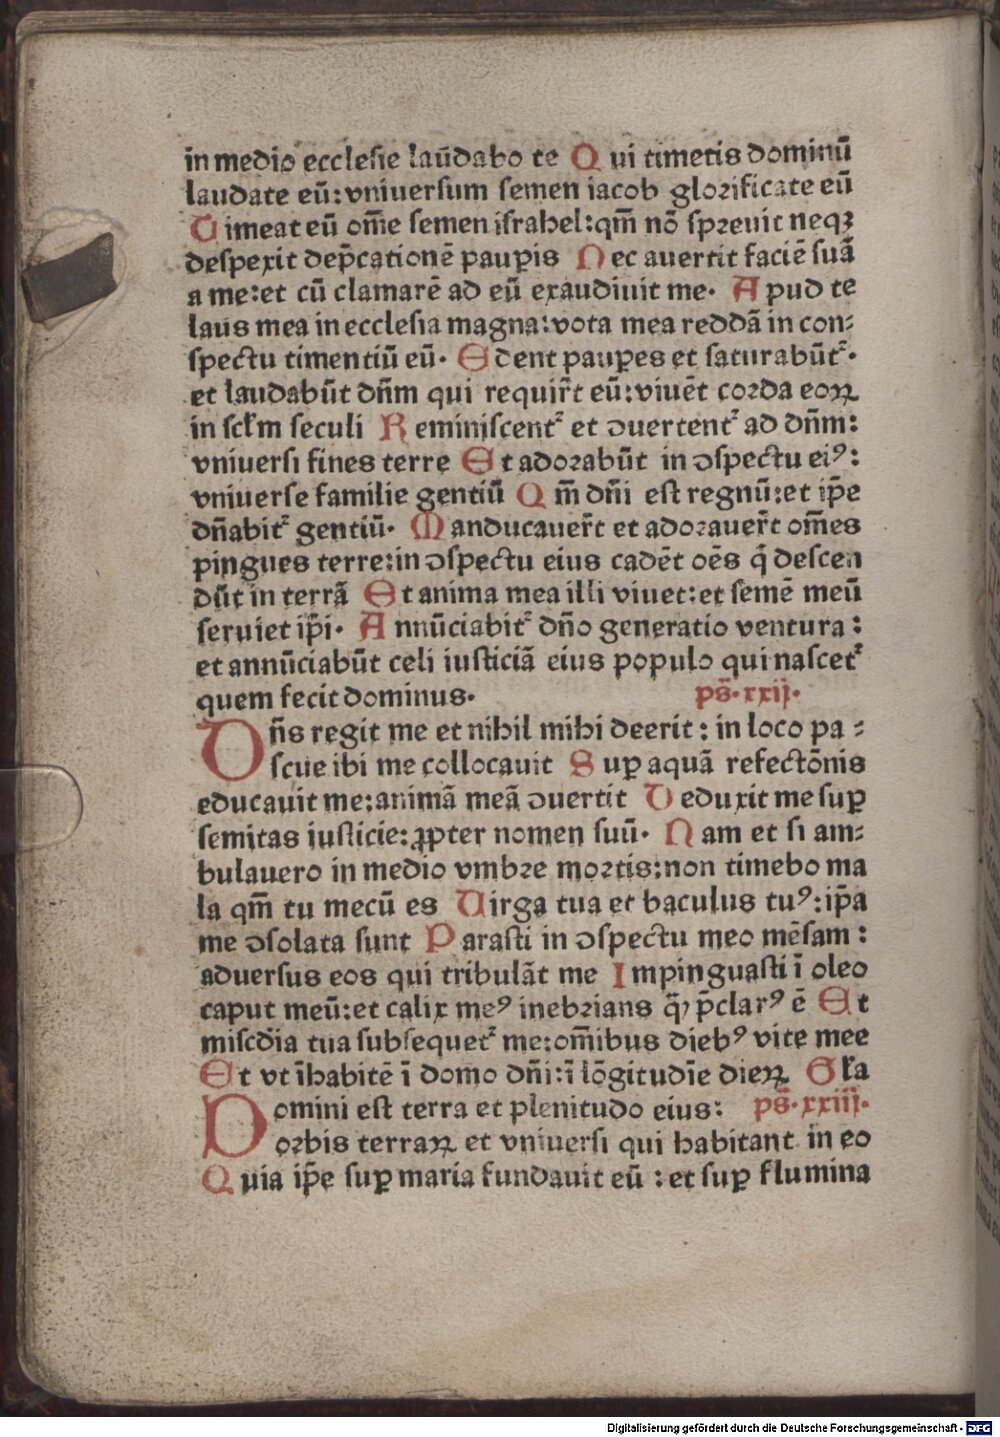 in medio ecclesie laūdabo te Qui timetis dominū
laudate eū: vniuersum semen iacob glorificate eū
Timeat eū om̄e semen israhel: qm̄ nō spreuit neqꝫ
despexit dep̄cationē paup̲is Nec auertit faciē suā
a me: et cū clamarē ad eū exaudiuit me. Apud te
laus mea in ecclesia magna: vota mea reddā in con⸗
spectu timentiū eū. Edent paup̲es et saturabūtᷣ.
et laudabūt dn̄m qui requir̄t eū: viuēt corda eoꝝ
in scl̄m seculi Reminiscentᷣ et ↄuertentᷣ ad dn̄m:
vniuersi fines terre Et adorabūt in ↄspectu eiꝰ:
vniuerse familie gentiū Qm̄ dn̄i est regnū: et ip̄e
dn̄abitᷣ gentiū. Manducauer̄t et adorauer̄t om̄es
pingues terre: in ↄspectu eius cadēt oēs q̄ descen
dūt in terrā Et anima mea illi viuet: et semē meū
seruiet ip̄i. Annūciabitᷣ dn̄o generatio ventura:
et annūciabūt celi iusticiā eius populo qui nascetᷣ
quem fecit dominus. ps̄. xxij.
Dn̄s regit me et nihil mihi deerit: in loco pa⸗
scue ibi me collocauit Sup̲ aquā refectōnis
educauit me: animā meā ↄuertit Deduxit me sup̲
semitas iusticie: ꝓpter nomen suū. Nam et si am⸗
bulauero in medio vmbre mortis: non timebo ma
la qm̄ tu mecū es Uirga tua et baculus tuꝰ: ip̄a
me ↄsolata sunt Parasti in ↄspectu meo mēsam:
aduersus eos qui tribulāt me Impinguasti ī oleo
caput meū: et calix meꝰ inebrians q̄ꝫ p̄clarꝰ ē Et
misc̄dia tua subsequetᷣ me: om̄ibus diebꝰ vite mee
Et vt īhabitē ī domo dn̄i: ī lōgitudīe dieꝝ Gl̄a
Domini est terra et plenitudo eius: ps̄. xxiij.
orbis terraꝝ et vniuersi qui habitant in eo
Quia ip̄e sup̲ maria fundauit eū: et sup̲ flumina
Digitalisierung gefördert durch die Deutsche Forschungsgemeinschaft - DFG